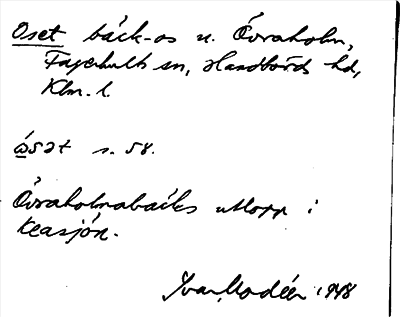 Oset bäck-os u. Övraholm,
Fagerhult sn, Handbörds hd,
Klm. l.
ώsət s. 58.
Övraholmabäcks utlopp i
Keasjön.
Ivar Modéer 1948